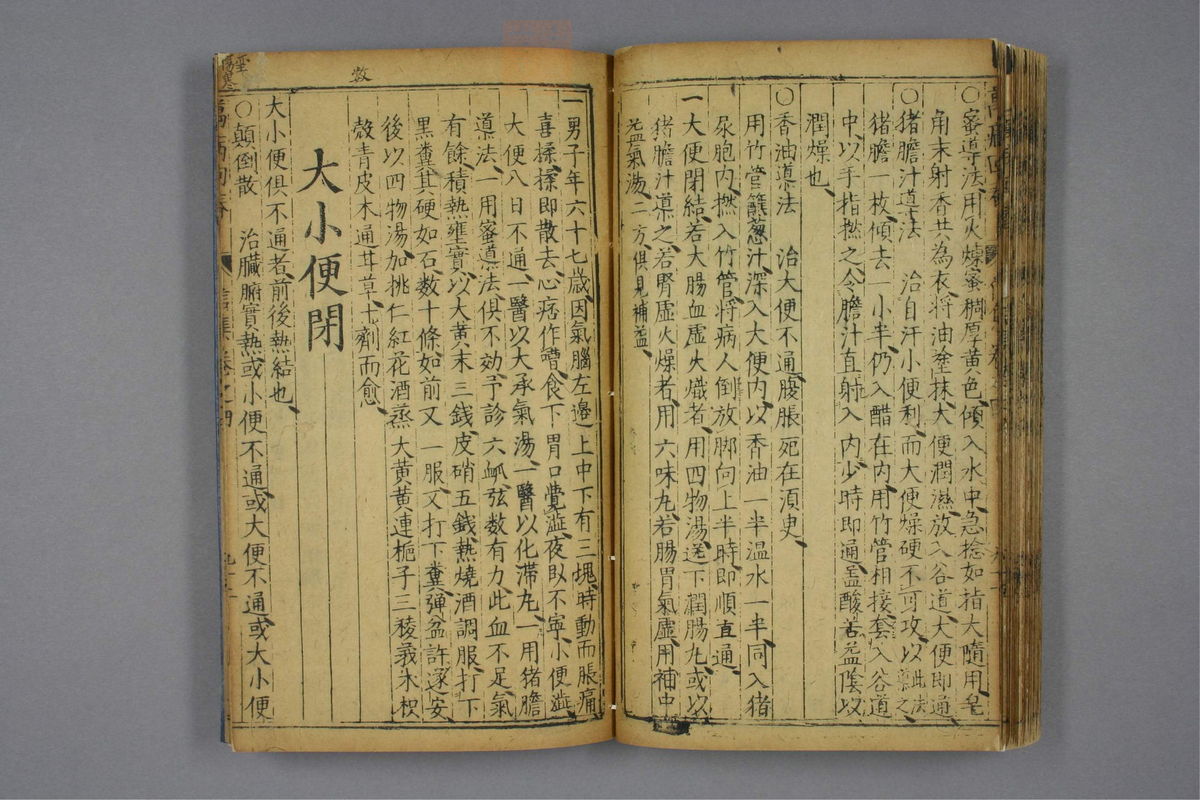 ○蜜導法用火煉蜜稠厚黃色傾入水中急捻如指大隨用皂
角末射香共為衣將油塗抹大便潤濕放入谷道大便即通
○猪膽汁導法　治自汗小便利而大便燥硬不可攻以此法藥之
猪膽一枚傾去一小半仍入醋在内用竹管相接套入谷道
中以手指撚之令膽汁直射入内少時即通盖酸苦益陰以
潤燥也
○香油導法　治大便不通腹脹死在湏史
用竹管蘸葱汁深入大便内以香油一半温水一半同入猪
尿胞内撚入竹管將病人倒放脚向上半時即順直通
一大便閉結若大腸血虛火熾者用四物湯送下潤腸丸或以
猪膽汁導之若腎虛火燥者用六味丸若腸胃氣虛用補中
益氣湯二方俱見補益
一男子年六十七歲因氣腦左邊上中下有三塊時動而脹痛
喜揉揉即散去心痞作嘈食下胃口覺澁夜臥不寧小便澁
大便八日不通一醫以大承氣湯一醫以化滯丸一用猪膽
導法一用蜜導法俱不効予診六脉弦数有力此血不足氣
有餘積熱壅實以大黃末三錢皮硝五錢熱燒酒調服打下
黑糞其硬如石数十條如前又一服又打下糞彈盆許遂安
後以四物湯加挑仁紅花酒蒸大黃黃連栀子三稜莪朮枳
殼青皮木通甘草十劑而愈
大小便閉
大小便俱不通者前後熱結也
○顛倒散　治臟腑實熱或小便不通或大便不通或大小便
数